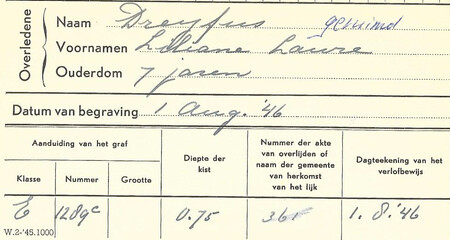 Overledene
Naam Dreyfus geruimd
Voornamen Liliane Laure
Ouderdom 7 jaren
Datum van begraving 1 Aug. '46
Aanduiding van het graf
Klasse Nummer Grootte
Diepte der kist
Nummer der akte van overlijden of naam der gemeente van herkomst van het lijk
Dagteekening van het verlofbewijs
E 1289c 0.75 361 1. 8. '46
W.2-'45.1000